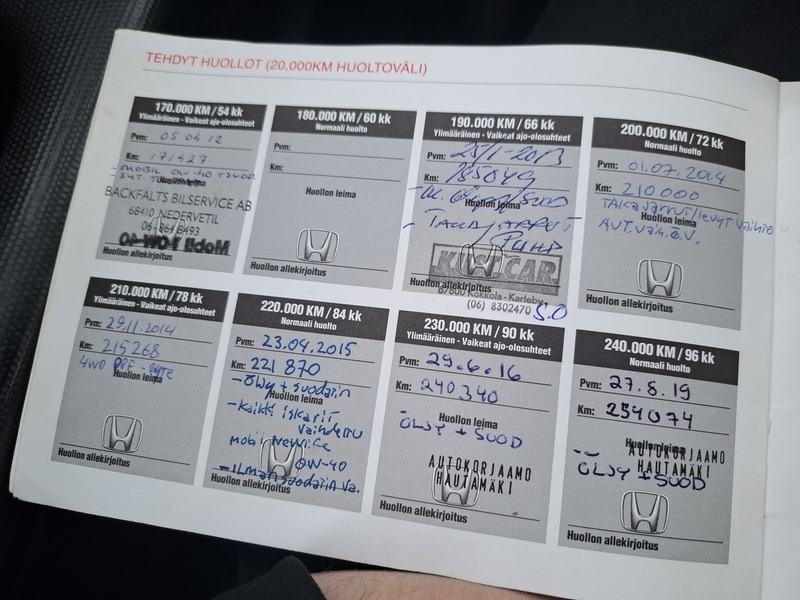 TEHDYT HUOLLOT (20.000KM HUOLTOVÄLI)
170.000 KM / 54 kk
Ylimääräinen - Vaikeat ajo-olosuhteet
Pvm: 05 04.12
Km: 171427
Huollon leima
BACKFALTS BILSERVICE AB
68410 NEDERVETIL
06-864 8493
Mobil 1 0W-40
Huollon allekirjoitus
180.000 KM / 60 kk
Normaali huolto
Pvm:
Km:
Huollon leima
Huollon allekirjoitus
190.000 KM / 66 kk
Ylimääräinen - Vaikeat ajo-olosuhteet
Pvm: 25/1-2013
Km: 185049
Huollon leima
CAR.
Huollon allekirjoitus
67600 Kokkola - Karleby
(06) 8302470 S.O
200.000 KM / 72 kk
Normaali huolto
Pvm: 01.07.2014
Km: 210000
Huollon leima
TAKAJARRUT/LEVYT VAIHTO
AUT.VAIH.Ö.V.
Huollon allekirjoitus
210.000 KM / 78 kk
Ylimääräinen - Vaikeat ajo-olosuhteet
Pvm: 29.11.2014
Km: 215268
4WD
Huollon leima
Huollon allekirjoitus
220.000 KM / 84 kk
Normaali huolto
Pvm: 23.04.2015
Km: 221 870
- Öljy + suodatin
Huollon leima
- Kaikki iskarit
vaihdettu
0W-40
- Ilmansuodatin va.
Huollon allekirjoitus
230.000 KM / 90 kk
Ylimääräinen - Vaikeat ajo-olosuhteet
Pvm: 29.6.16
Km: 240340
Huollon leima
ÖLJY + SUOD
AUTOKORJAAMO
HAUTAMÄKI
Huollon allekirjoitus
240.000 KM / 96 kk
Normaali huolto
Pvm: 27.8.19
Km: 254074
Huollon leima
AUTOKORJAAMO
HAUTAMÄKI
ÖLJY + SUOD
Huollon allekirjoitus